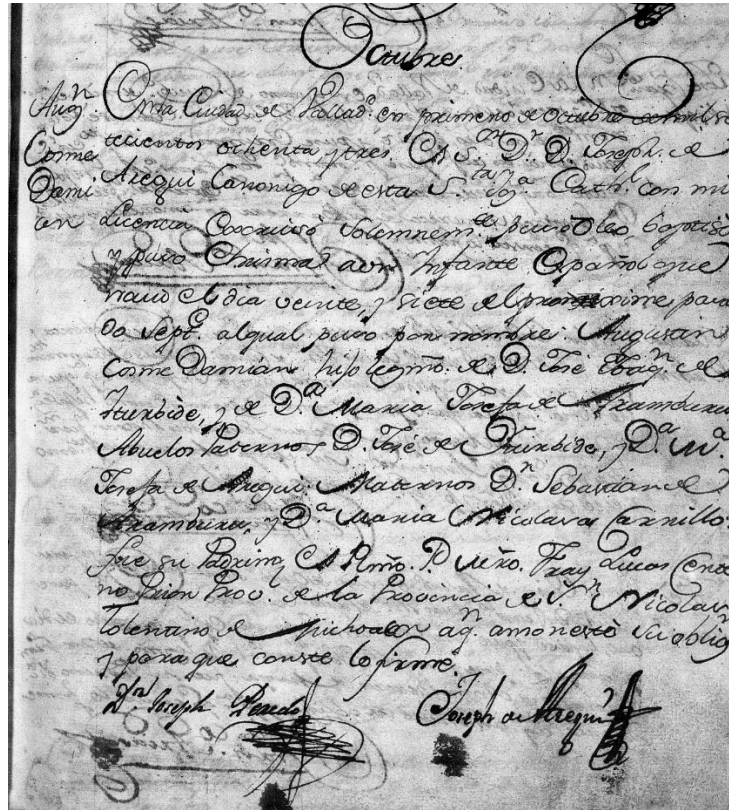 Octubre
Aug.n En la Ciudad de Vallad.d en primero de Octubre de mil se
Cosme tecientos ochenta y tres. El S.or D.r D. Joseph de
Dami Aregui Canonigo de esta S.ta Yg.a Cath.l con mi
an Licencia Exorcisó solemnem.te puso Oleo baptisó
y puso Chrisma á un Infante Español que
nacio el dia veinte, y siete del proximo pasa
do Sept.e al qual puso por nombre Augustin
Cosme Damian, hijo legmo. de D. José Joaq.n de
Yturbide, y de D.a Maria Josefa de Aramburu
Abuelos Paternos D. José de Yturbide, y D.a M.a
Josefa de Aregui. Maternos D.n Sebastian de
Aramburu, y D.a Maria Nicolasa Carrillo
fue su Padrino El Rmo. P. Mro. Fray Lucas Cente
no Prior Prov. de la Provincia de S.n Nicolas
Tolentino de Michoacan aq.n amonestè su oblig.n
y para que conste lo firmé.
B.r Joseph Peredo Joseph de Arregui